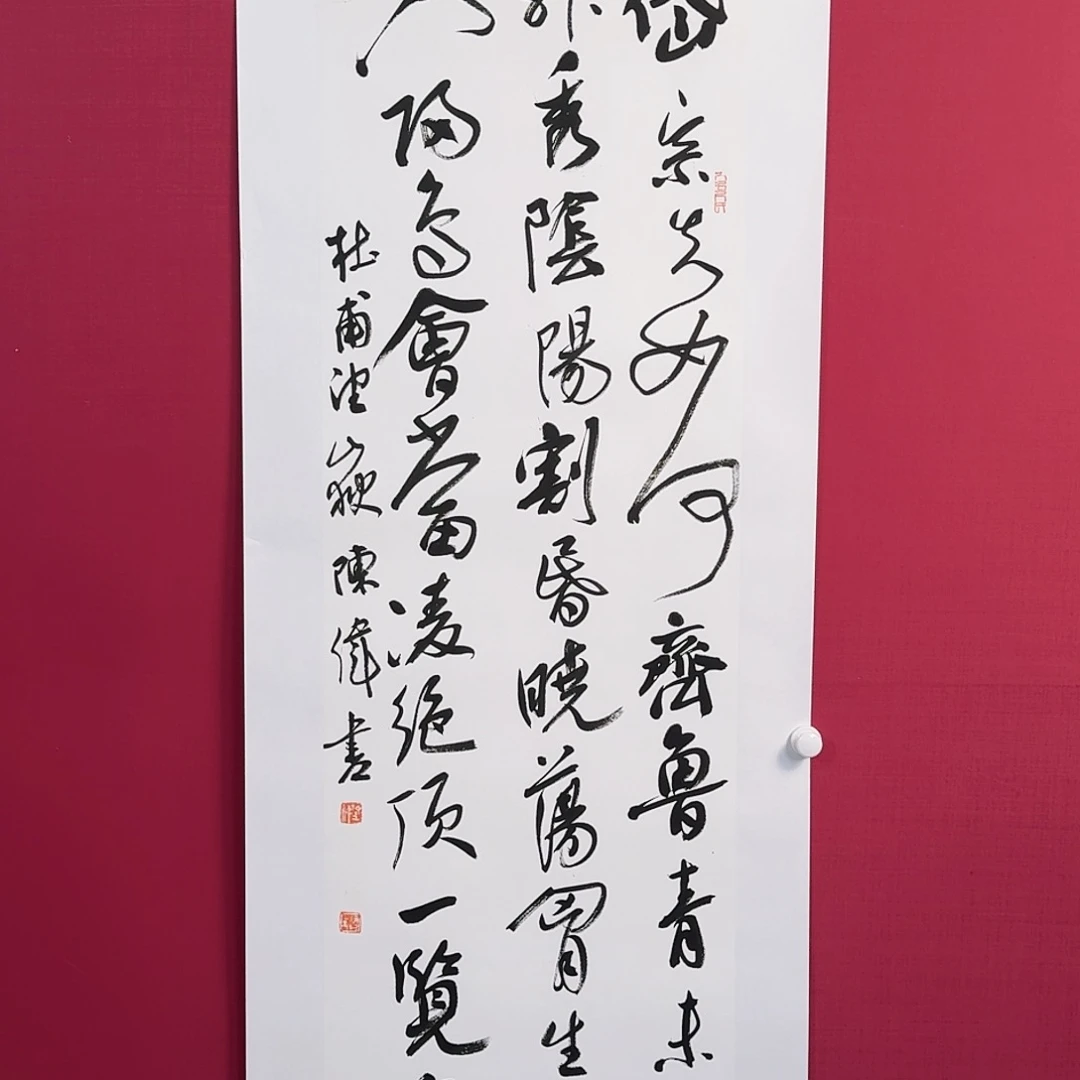 岱宗夫如何齊魯青未
神秀陰陽割昏曉蕩胷生
入歸鳥會當凌絕頂一覽
杜甫望嶽陳偉書